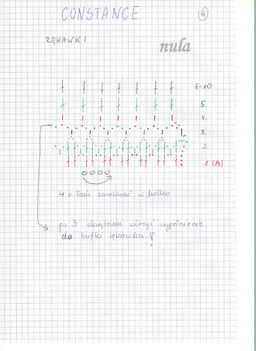 CONSTANCE
④
RĘKAWKI
nula
6-10
5.
4.
3.
2.
1 (14)
4 o. łańc. zamknąć w kółko
po 3 okrążeniu wszyć wypełnienie
do bufki rękawka !